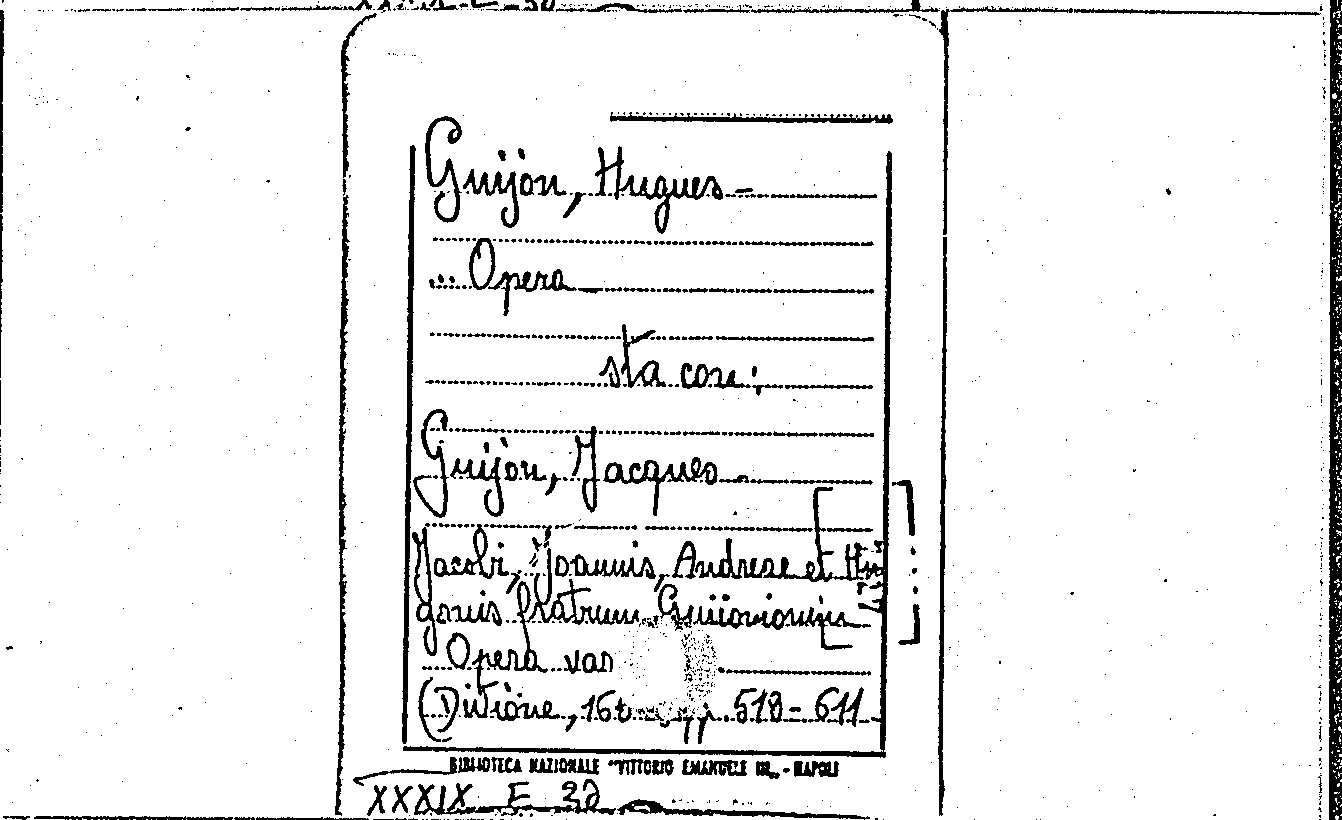 Guijòn, Hugues -
... Opera -
sta con:
Guijòn, Jacques -
Jacobi, Joannis, Andreae et Hu
gonis fratrum Guijonionum
Opera var
(Divione, 16 pp. 518-611
BIBLIOTECA NAZIONALE "VITTORIO EMANUELE III" - NAPOLI
XXXIX E 30